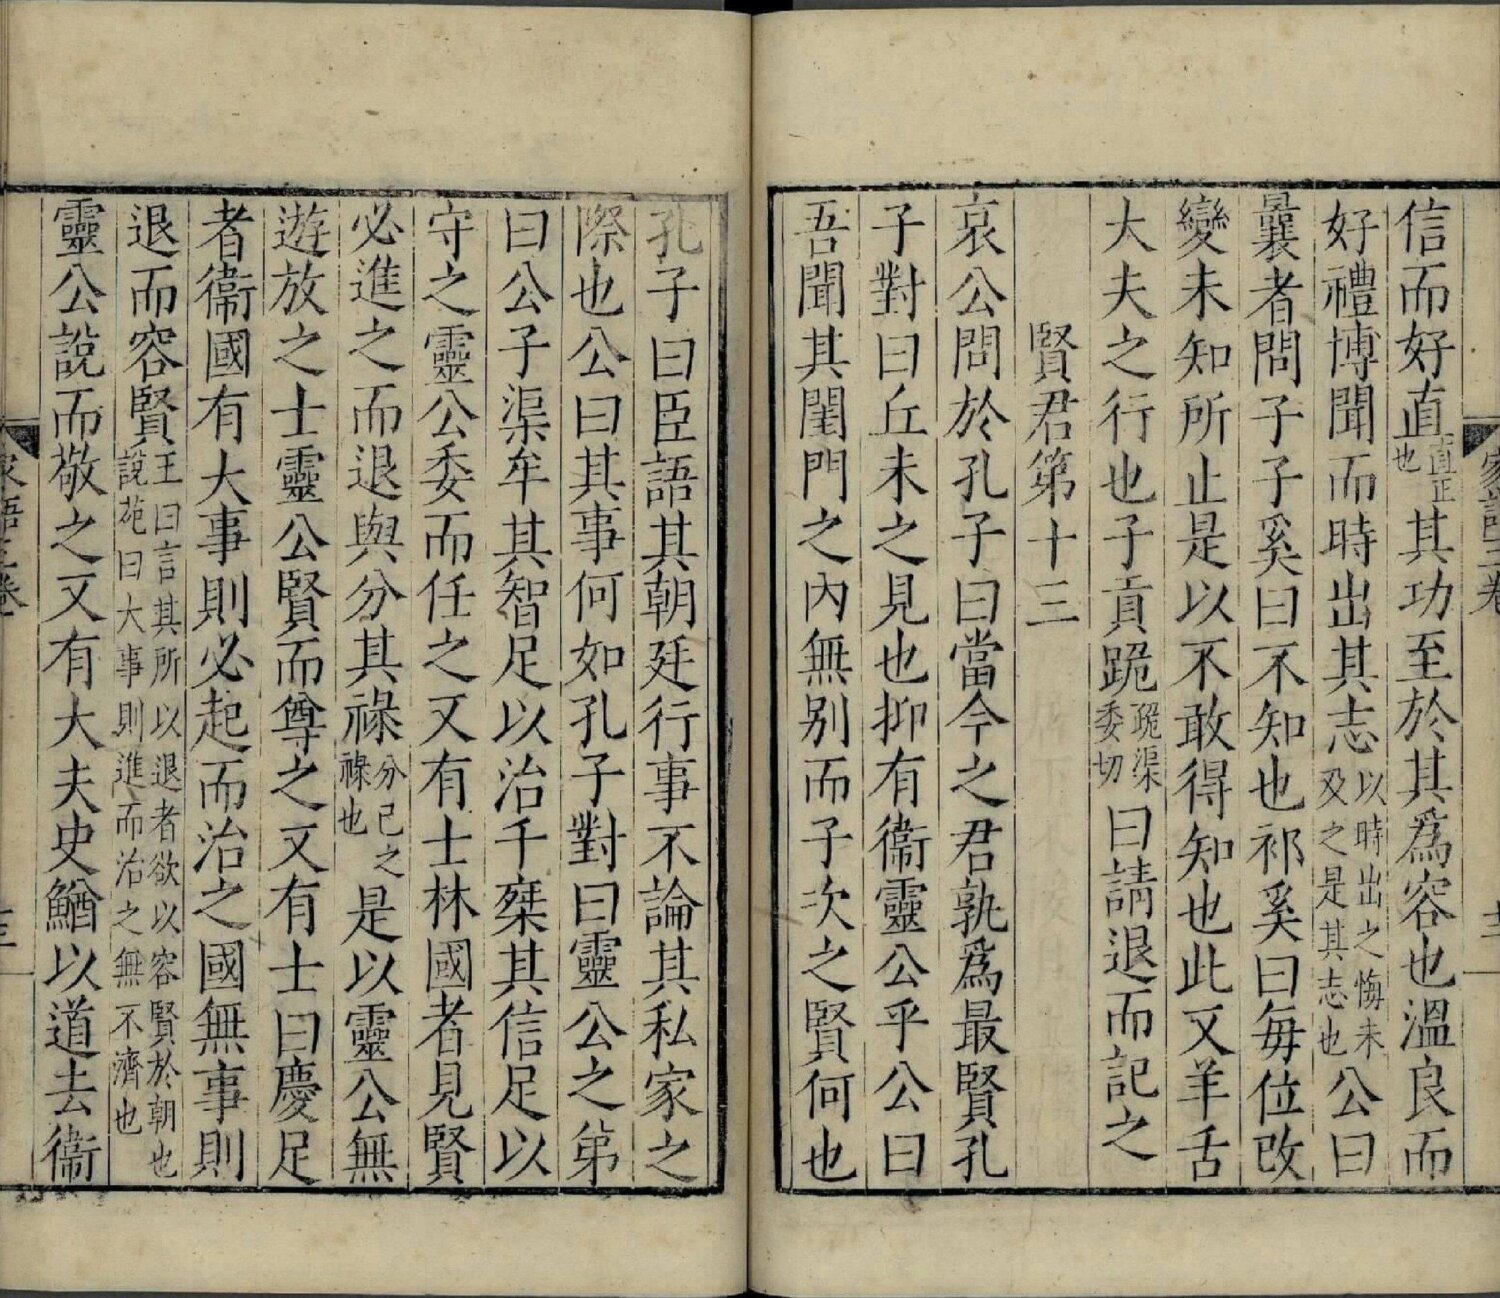 信而好直直正也其功至於其爲容也溫良而
好禮博聞而時出其志以時出之悔未及之是其志也公曰
曩者問子子奚曰不知也祁奚曰每位改
變未知所止是以不敢得知也此又羊舌
大夫之行也子貢跪跪渠委切曰請退而記之
賢君第十三
哀公問於孔子曰當今之君孰爲最賢孔
子對曰丘未之見也抑有衞靈公乎公曰
吾聞其閨門之內無别而子次之賢何也
孔子曰臣語其朝廷行事不論其私家之
際也公曰其事何如孔子對曰靈公之弟
曰公子渠牟其智足以治千椉其信足以
守之靈公委而任之又有士林國者見賢
必進之而退與分其祿分己之祿也是以靈公無
遊放之士靈公賢而尊之又有士曰慶足
者衞國有大事則必起而治之國無事則
退而容賢王曰言其所以退者欲以容賢於朝也說苑曰大事則進而治之無不濟也
靈公說而敬之又有大夫史鰌以道去衞